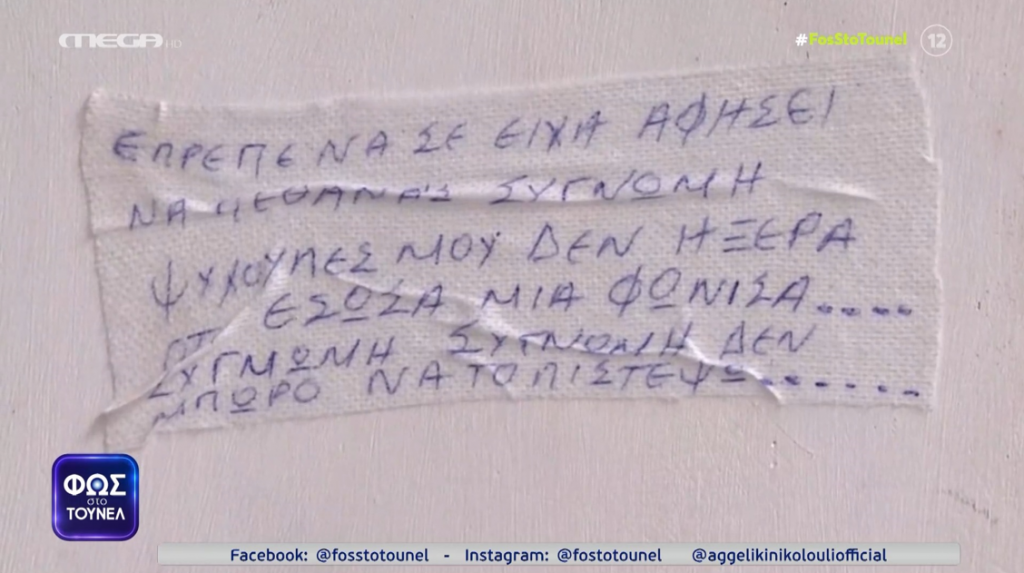 MEGA HD
#FosStoTounel 12
ΕΠΡΕΠΕ ΝΑ ΣΕ ΕΙΧΑ ΑΦΗΣΕΙ
ΝΑ ΠΕΘΑΝΑΣ ΣΥΓΝΩΜΗ
ΨΥΧΟΥΠΕΣ ΜΟΥ ΔΕΝ ΗΞΕΡΑ
ΕΣΩΣΑ ΜΙΑ ΦΩΝΙΣΑ.....
ΣΥΓΜΩΜΗ ΣΥΓΝΩΜΗ ΔΕΝ
ΜΠΩΡΟ ΝΑ ΤΟ ΠΙΣΤΕΨΩ.......
ΦΩΣ
στο
ΤΟΥΝΕΛ
Facebook: @fosstotounel - Instagram: @fostotounel @aggelikinikolouliofficial